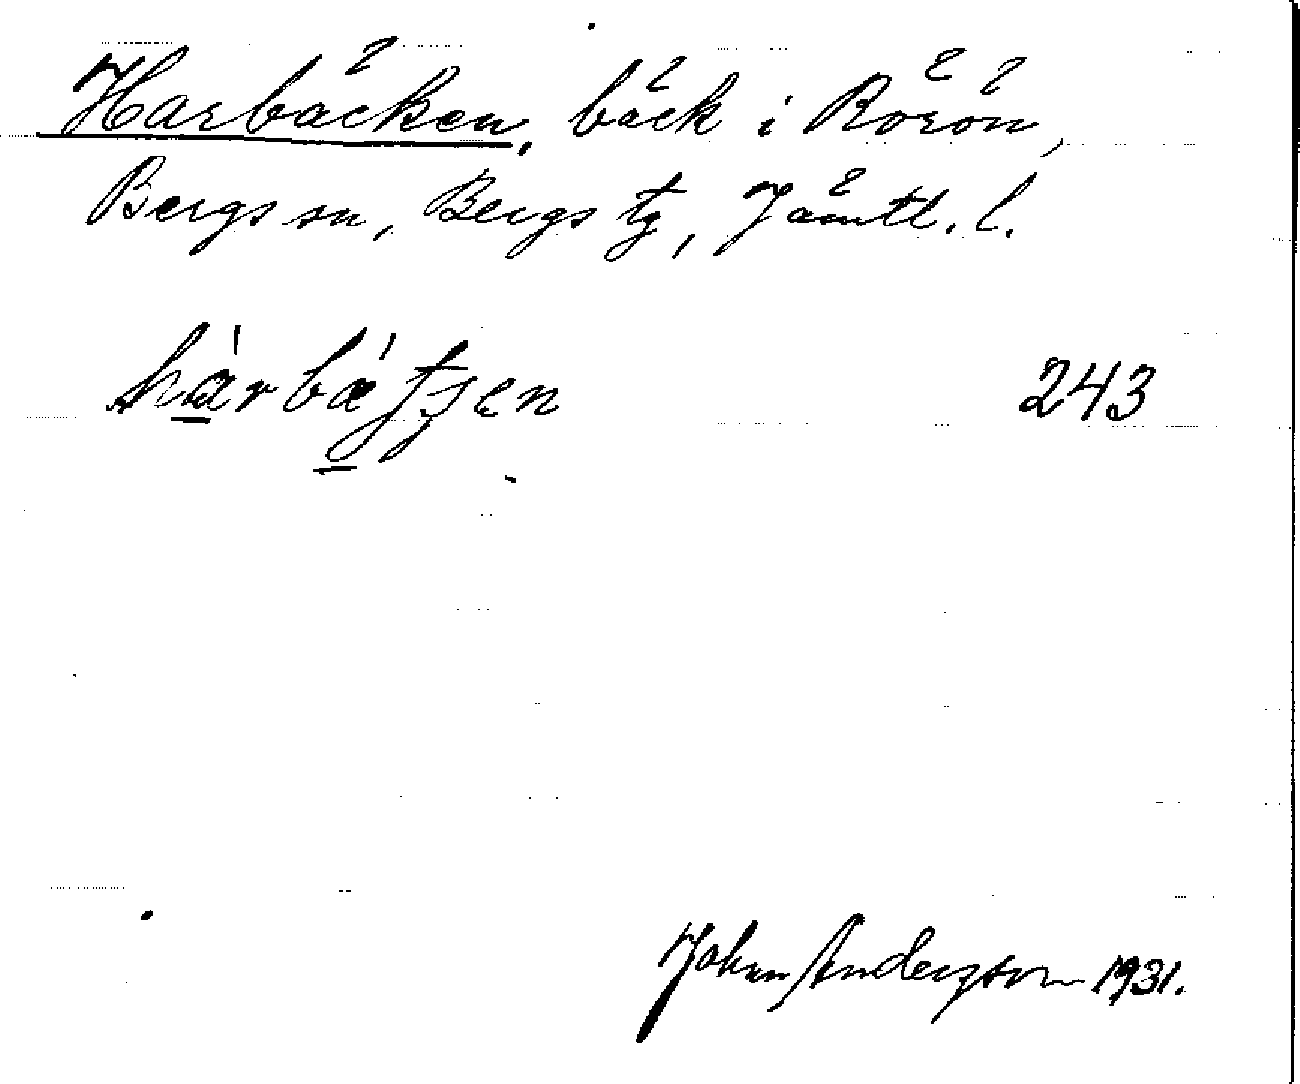 Harbäcken, bäck i Rörön,
Bergs sn, Bergs tg, Jämtl. l.
243
Johan Andersson 1931.